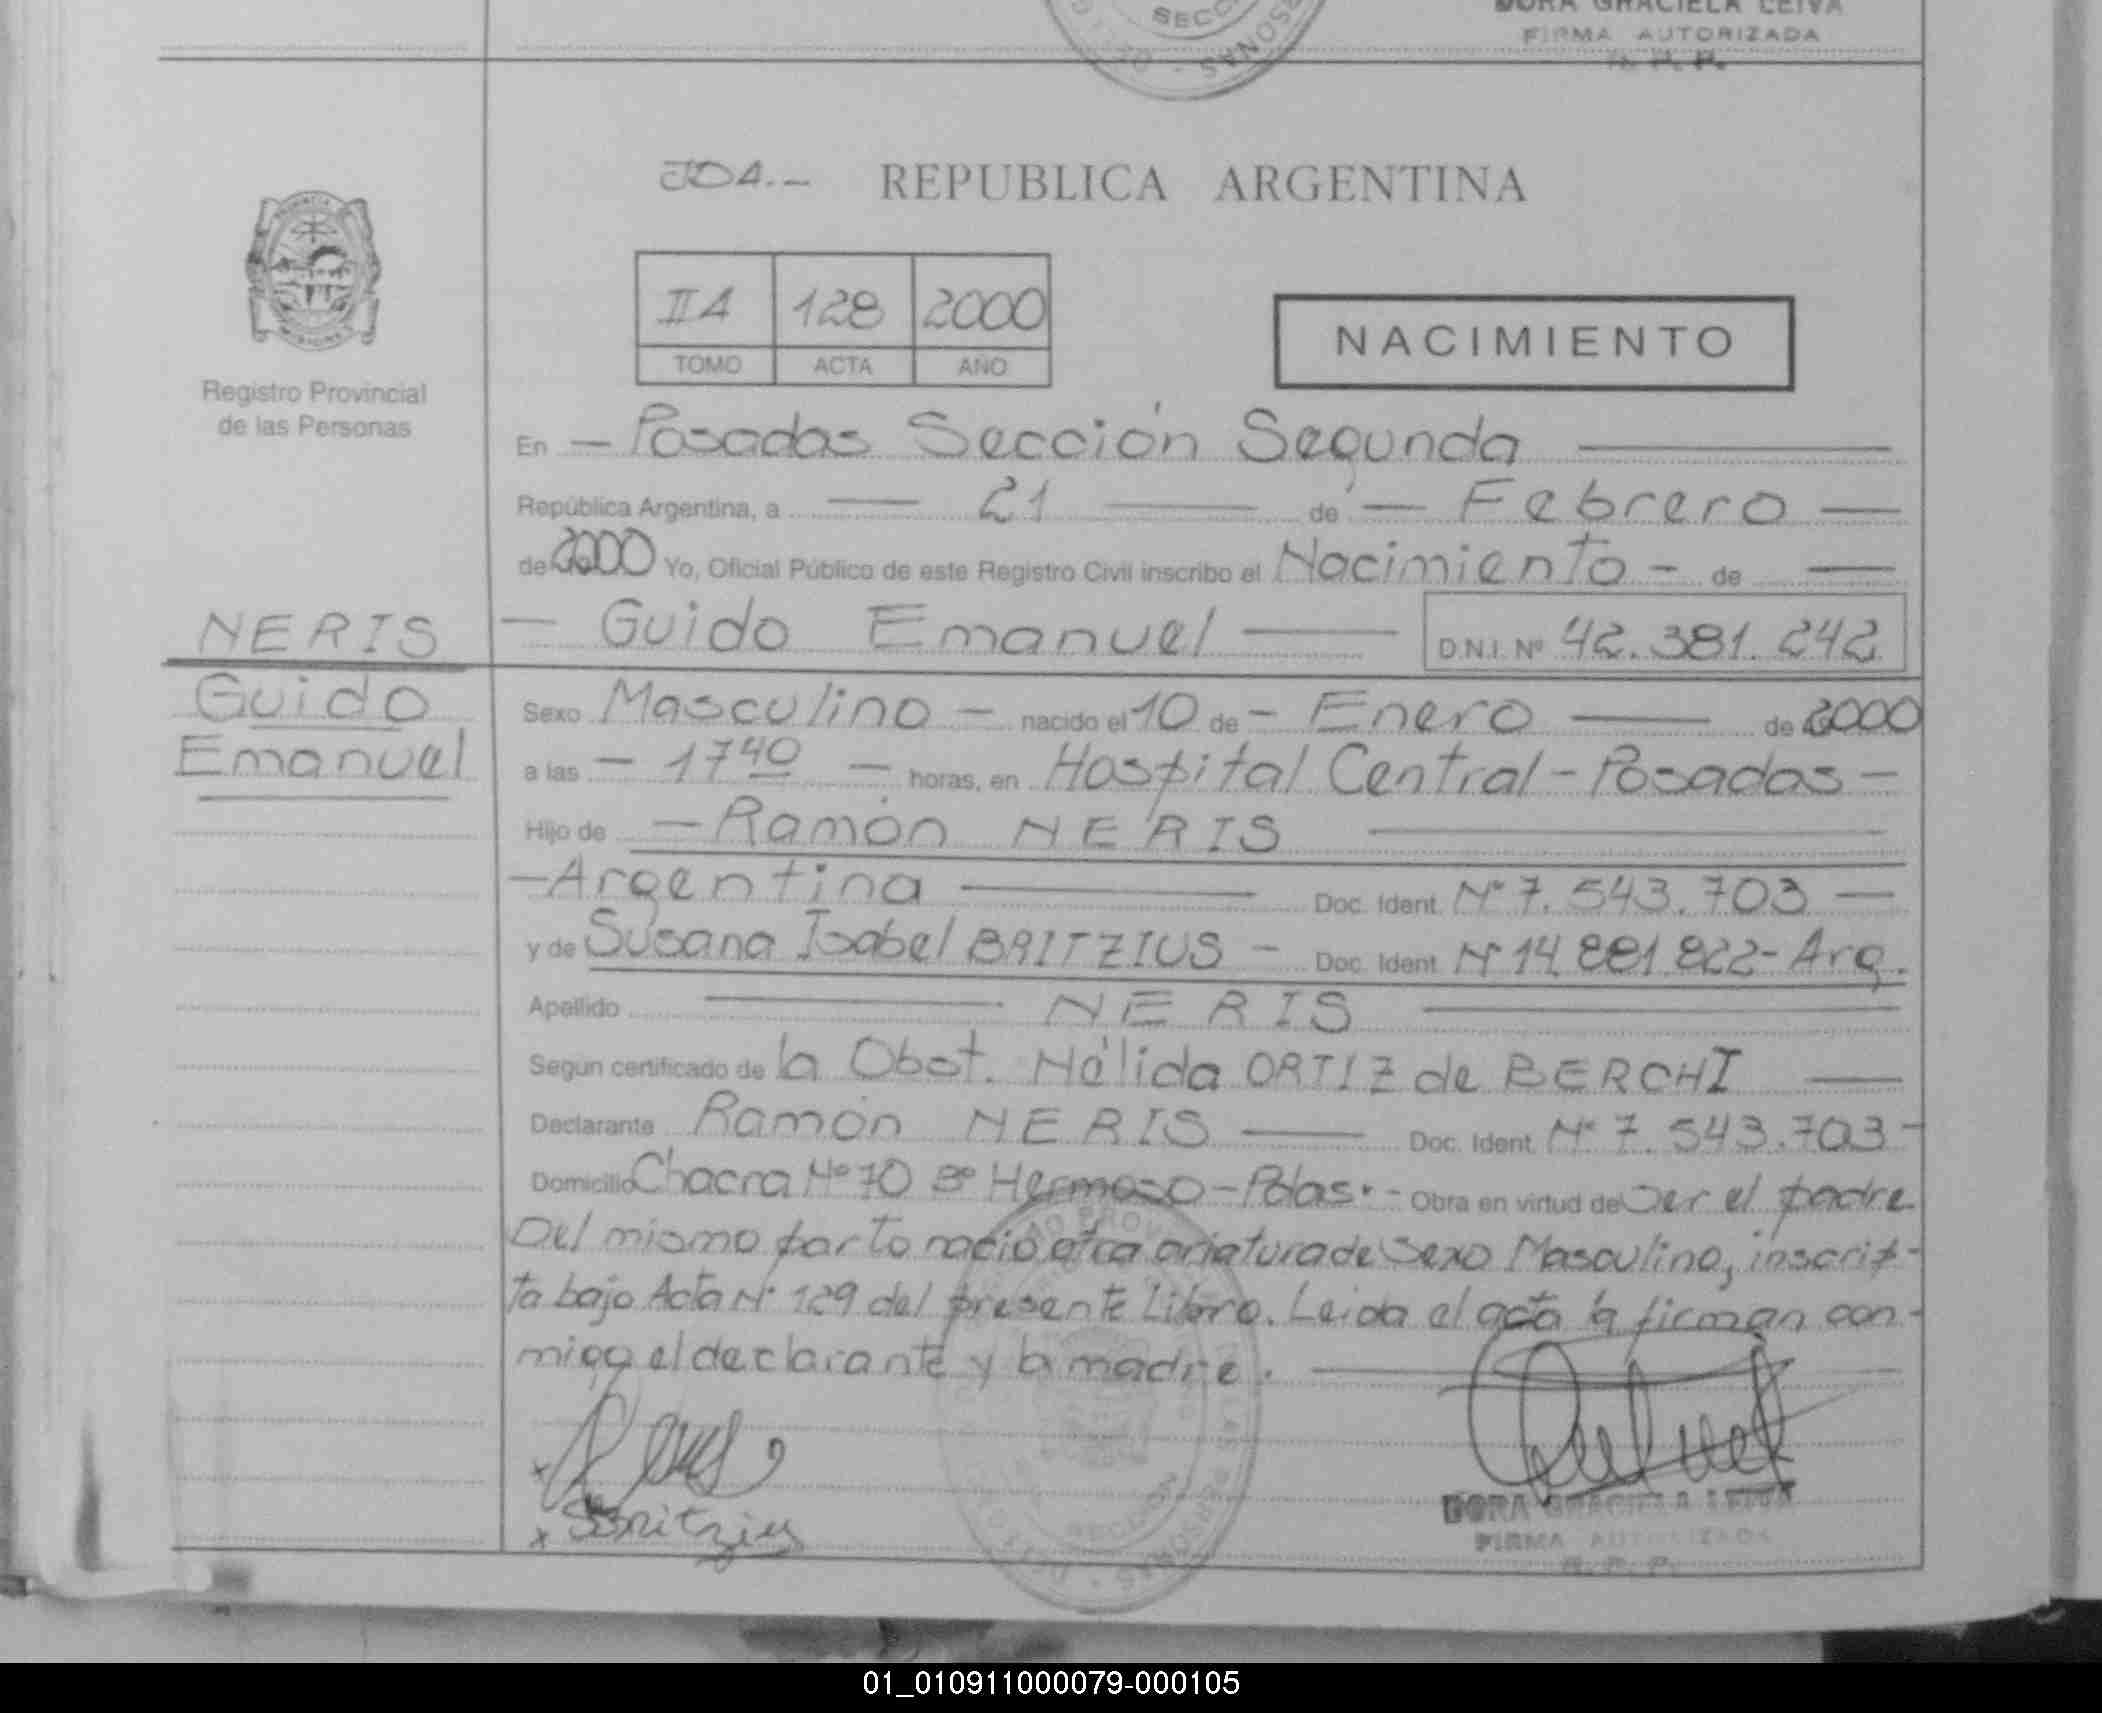 SECC
DORA GRACIELA LEIVA
FIRMA AUTORIZADA
R. P. P.
JOA.- REPUBLICA ARGENTINA
IIA 128 2000
TOMO ACTA AÑO
NACIMIENTO
Registro Provincial
de las Personas
En — Posadas Sección Segunda —
República Argentina, a — 21 — de — Febrero —
de 2000 Yo, Oficial Público de este Registro Civil inscribo el Nacimiento - de —
NERIS — Guido Emanuel — D.N.I. Nº 42.381.242
Guido
Emanuel
Sexo Masculino - nacido el 10 de - Enero — de 2000
a las - 17 40 - horas, en Hospital Central - Posadas -
Hijo de - Ramón NERIS —
- Argentina — Doc. Ident. Nº 7.543.703 —
y de Susana Isabel BRITZIUS - Doc. Ident. Nº 14.881.822 - Arg.
Apellido — NERIS —
Según certificado de la Obst. Nélida ORTIZ de BERCHI —
Declarante Ramón NERIS — Doc. Ident. Nº 7.543.703 -
Domicilio Chacra Nº 70 Bº Hermoso - Pdas. - Obra en virtud de Ser el padre
Del mismo parto nació otra criatura de Sexo Masculino, inscrip-
ta bajo Acta Nº 129 del presente Libro. Leida el acta la firman con-
migo el declarante y la madre. —
x
x SBritzius
DORA GRACIELA LEIVA
FIRMA AUTORIZADA
R. P. P.
01_010911000079-000105